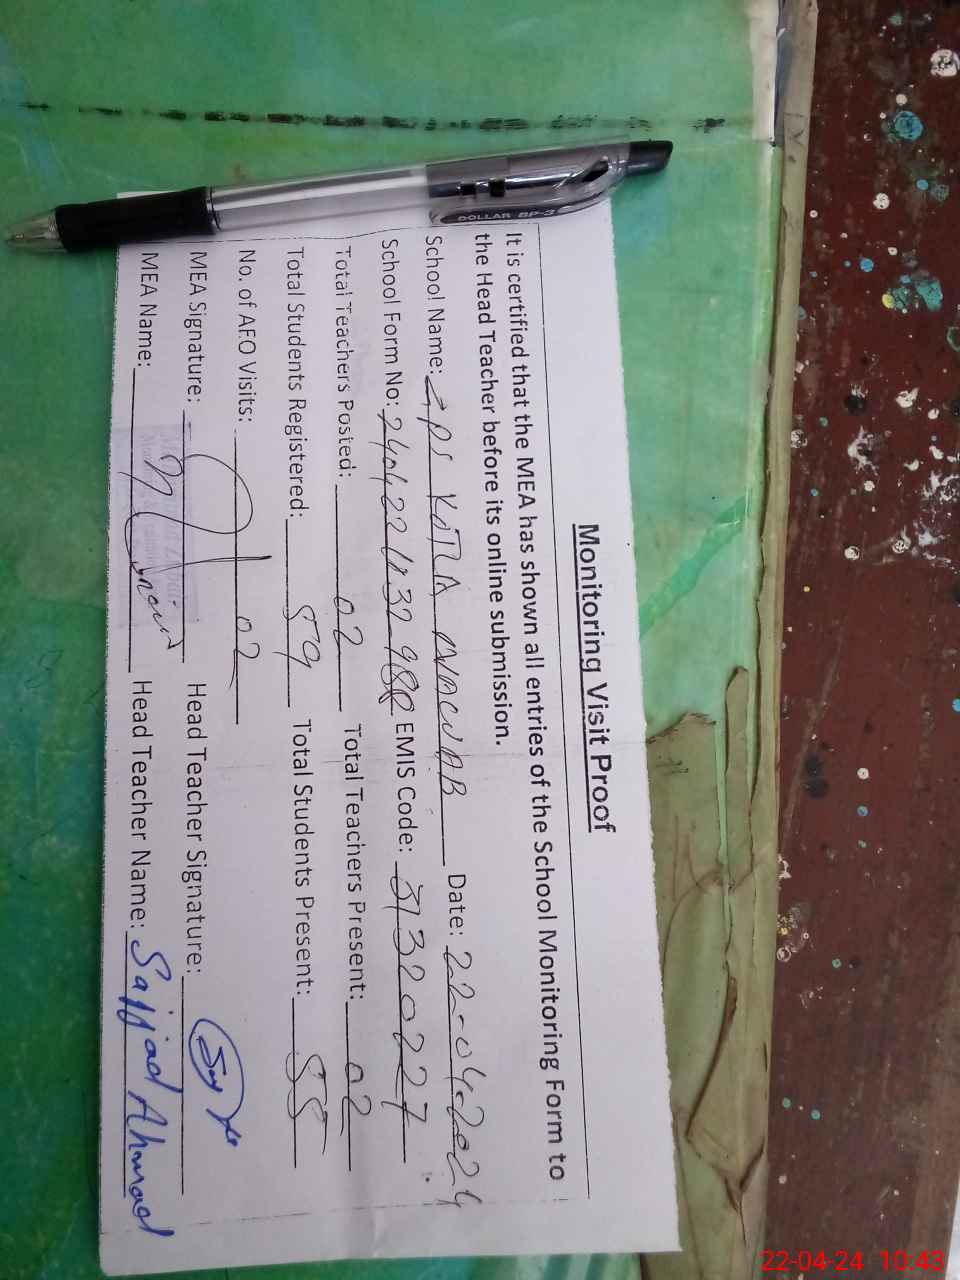 Monitoring Visit Proof
It is certified that the MEA has shown all entries of the School Monitoring Form to
the Head Teacher before its online submission.
School Name: GPS KOTLA NAWAB Date: 22-04-2024
School Form No: EMIS Code: 31320227
Total Teachers Posted: 02 Total Teachers Present: 02
Total Students Registered: 59 Total Students Present: 55
No. of AEO Visits: 02
MEA Signature: Head Teacher Signature:
MEA Name: Head Teacher Name: Sajjad Ahmad
DOLLAR BP-3
22-04-24 10:43